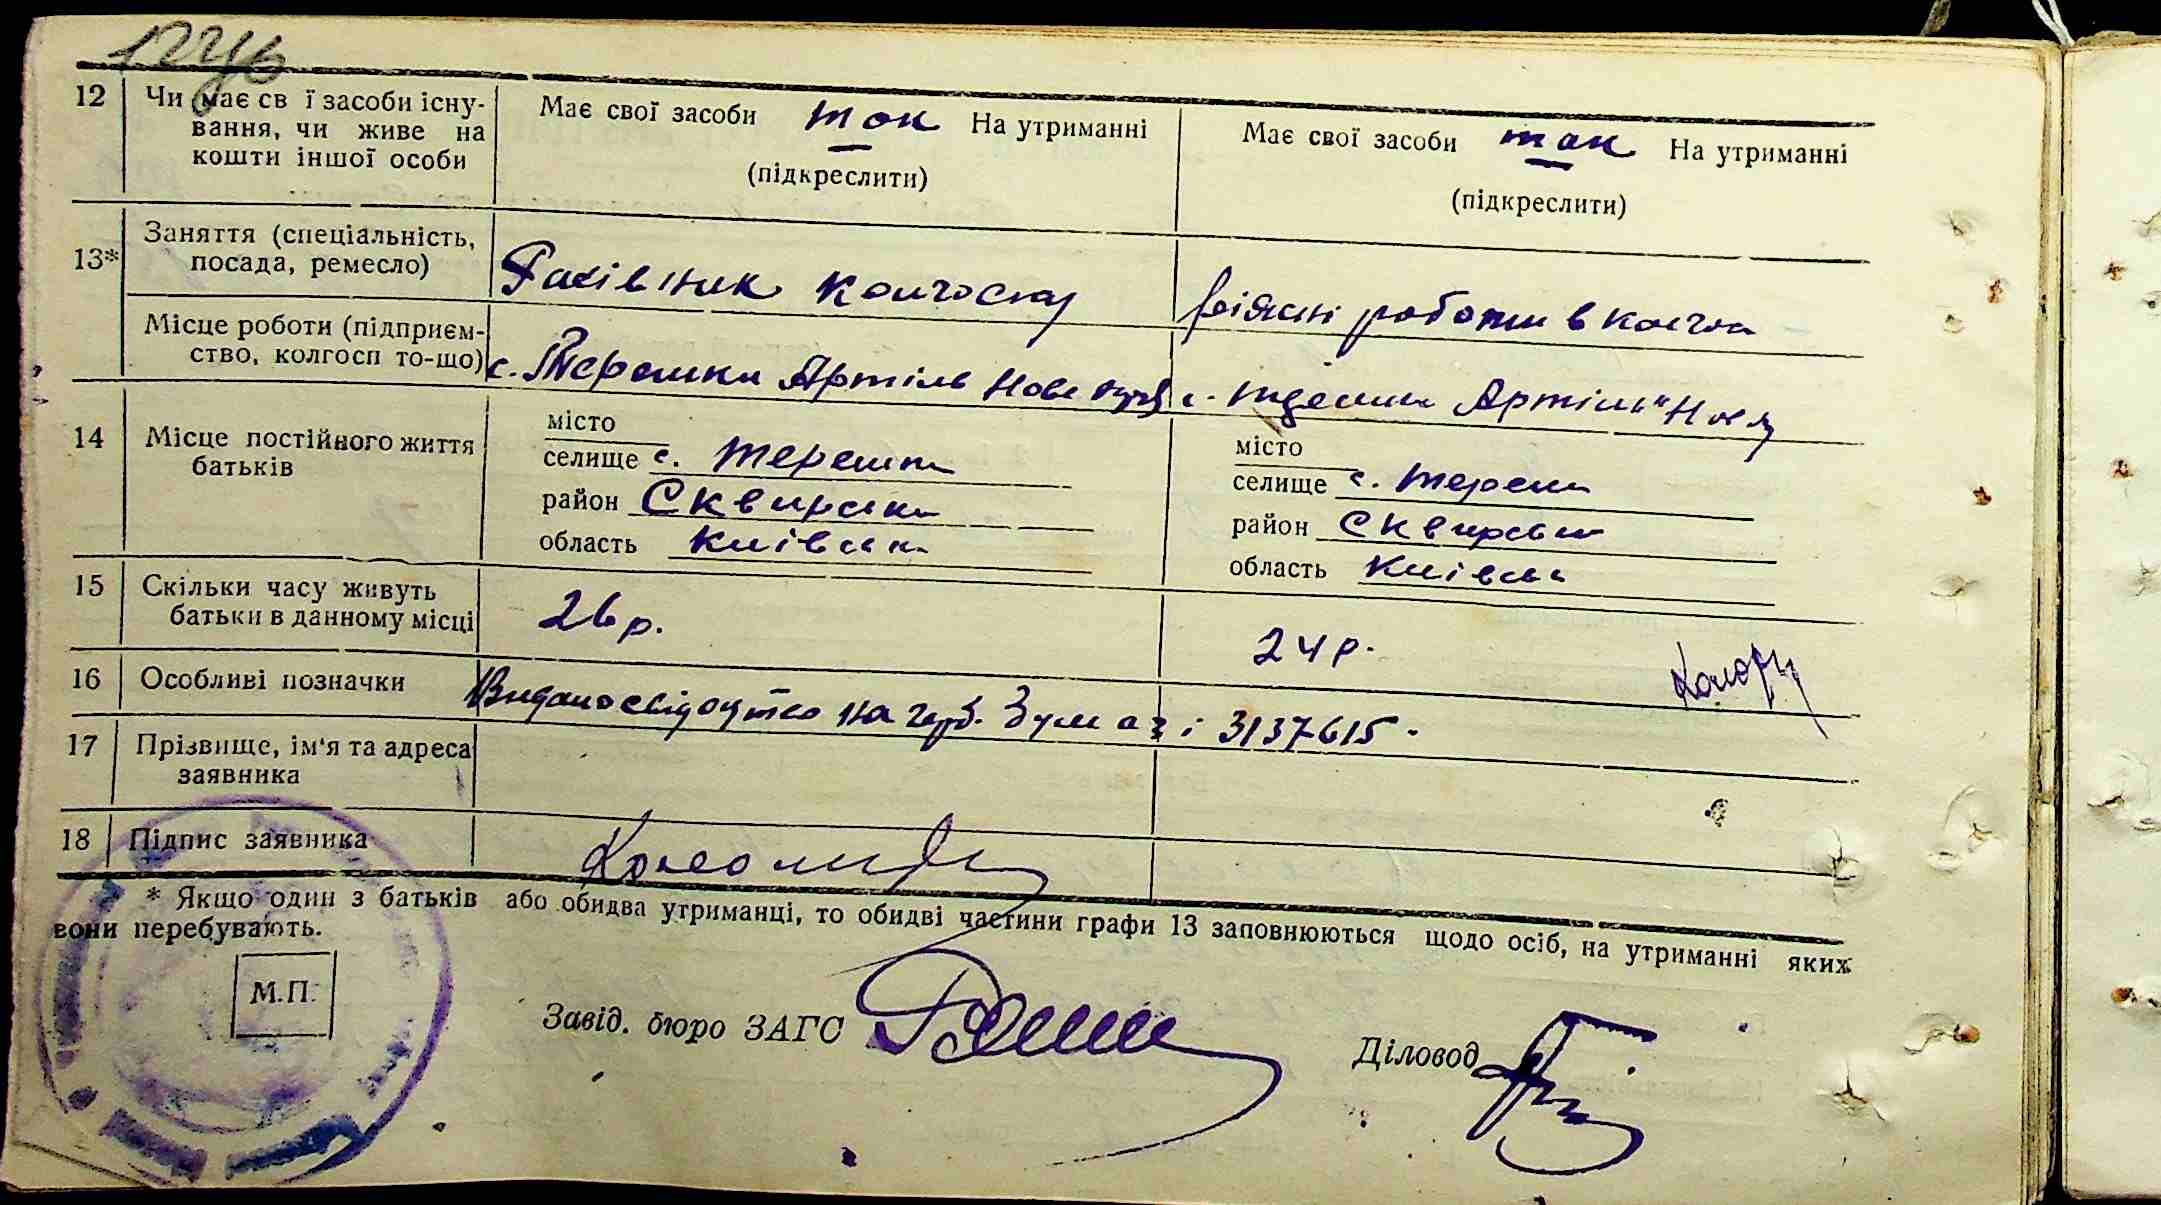 12
Чи має св ї засоби існу-
вання, чи живе на
кошти іншої особи
Має свої засоби так На утриманні
(підкреслити)
Має свої засоби так На утриманні
(підкреслити)
13*
Заняття (спеціальність,
посада, ремесло)
Рахівник колгоспу
різні роботи в
Місце роботи (підприєм-
ство, колгосп то-що)
с. Терешки Артіль Нове
с. Артіль
14
Місце постійного життя
батьків
місто
селище с. Терешки
район Сквирськ
область Київськ
місто
селище с. Терешк
район Сквирськ
область Київськ
15
Скільки часу живуть
батьки в данному місці
26 р.
24 р.
16
Особливі позначки
Видано свідоцтво на герб. бумазі 3137615.
17
Прізвище, ім'я та адреса
заявника
18
Підпис заявника
* Якщо один з батьків або обидва утриманці, то обидві частини графи 13 заповнюються щодо осіб, на утриманні яких
вони перебувають.
М.П.
Завід. бюро ЗАГС
Діловод